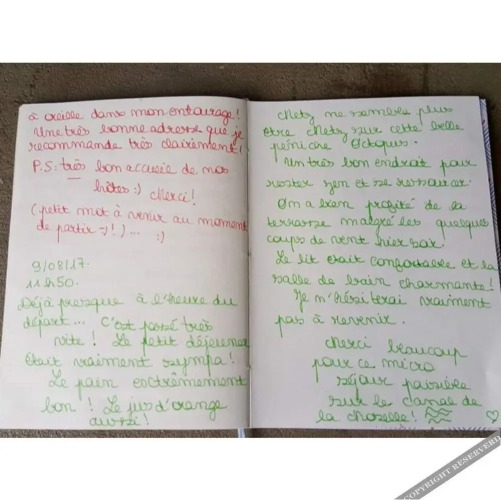 à oreille dans mon entourage !
Une très bonne adresse que je
recommande très clairement !
P.S : très bon accueil de nos
hôtes :) Merci !
(petit mot à venir au moment
de partir =) !) ... :)
9/08/17.
11h50.
Déjà presque à l'heure du
départ ... C'est passé très
vite ! Le petit déjeuner
était vraiment sympa !
Le pain extrêmement
bon ! Le jus d'orange
aussi !
Chetz ne semble plus
être Chetz sur cette belle
péniche Octopus.
Un très bon endroit pour
rester zen et se ressourcer.
On a bien profité de la
terrasse malgré les quelques
coups de vent hier soir.
Le lit était confortable et la
salle de bain charmante !
Je n'hésiterai vraiment
pas à revenir.
Merci beaucoup
pour ce micro
séjour paisible
sur le canal de
la Moselle !
COPYRIGHT RESERVED